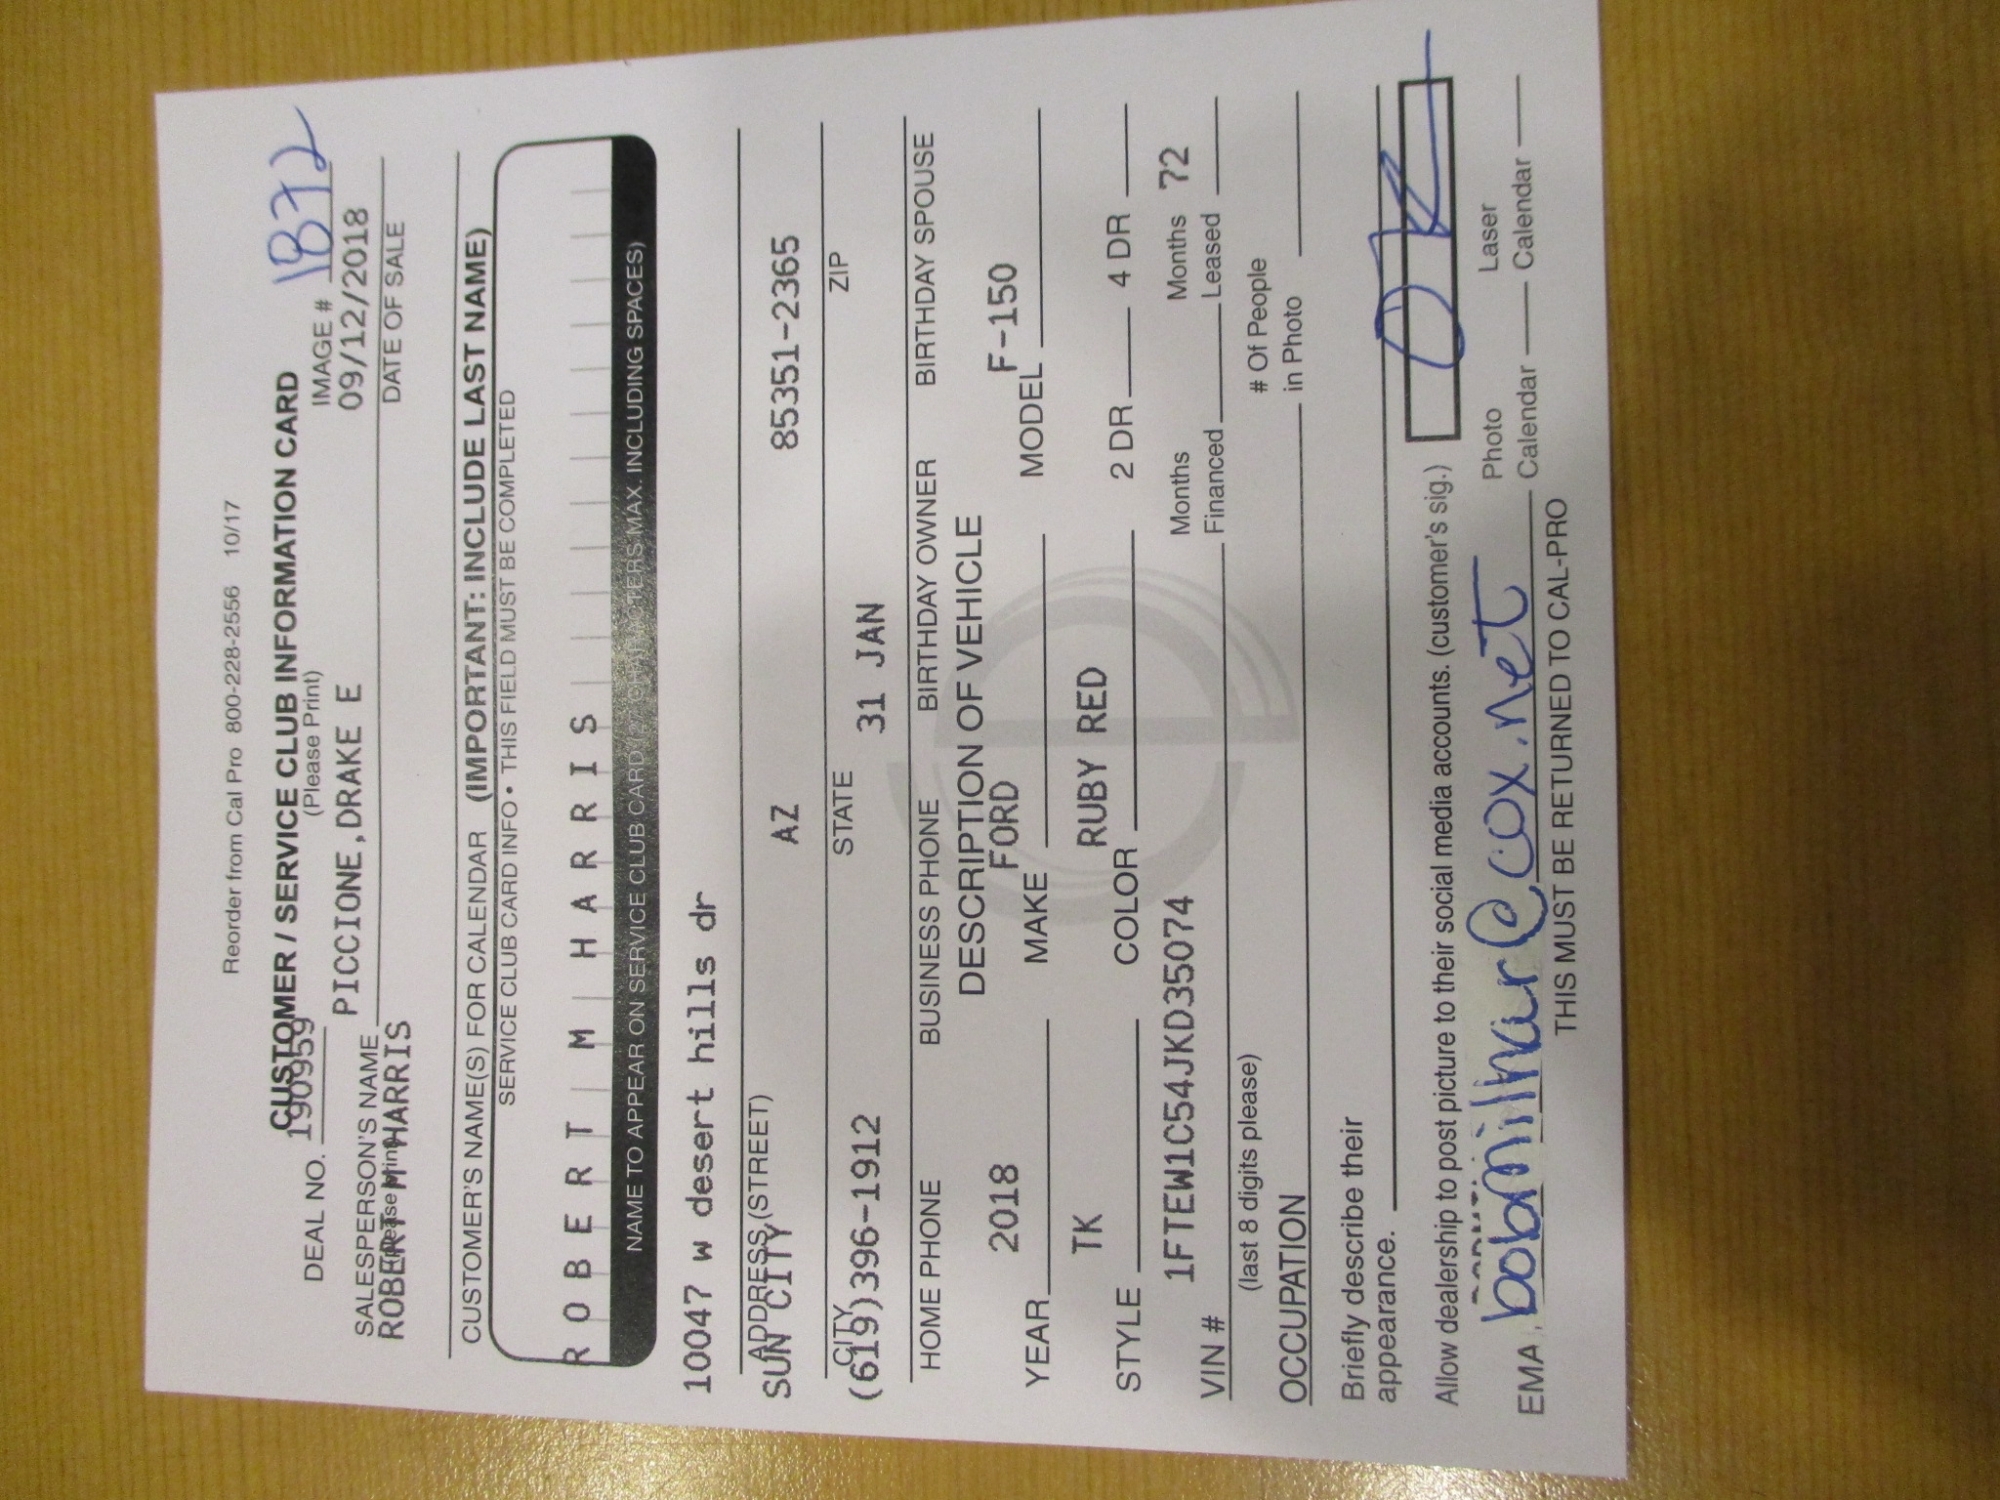 Reorder from Cal Pro 800-228-2556 10/17
CUSTOMER / SERVICE CLUB INFORMATION CARD
(Please Print)
DEAL NO. 190959
IMAGE # 1872
PICCIONE,DRAKE E 09/12/2018
SALESPERSON'S NAME (Please print) DATE OF SALE
ROBERT M HARRIS
CUSTOMER'S NAME(S) FOR CALENDAR (IMPORTANT: INCLUDE LAST NAME)
SERVICE CLUB CARD INFO • THIS FIELD MUST BE COMPLETED
R O B E R T M H A R R I S
NAME TO APPEAR ON SERVICE CLUB CARD CHARACTERS MAX. INCLUDING SPACES)
10047 w desert hills dr
ADDRESS (STREET)
SUN CITY AZ 85351-2365
CITY STATE ZIP
(619)396-1912 31 JAN
HOME PHONE BUSINESS PHONE BIRTHDAY OWNER BIRTHDAY SPOUSE
DESCRIPTION OF VEHICLE
YEAR 2018 MAKE FORD MODEL F-150
STYLE TK COLOR RUBY RED 2 DR 4 DR
VIN # 1FTEW1C54JKD35074 Months Financed Months Leased 72
(last 8 digits please)
OCCUPATION # Of People in Photo
Briefly describe their
appearance.
Allow dealership to post picture to their social media accounts. (customer's sig.)
EMA bobamilhar@cox.net Photo Calendar Laser Calendar
THIS MUST BE RETURNED TO CAL-PRO